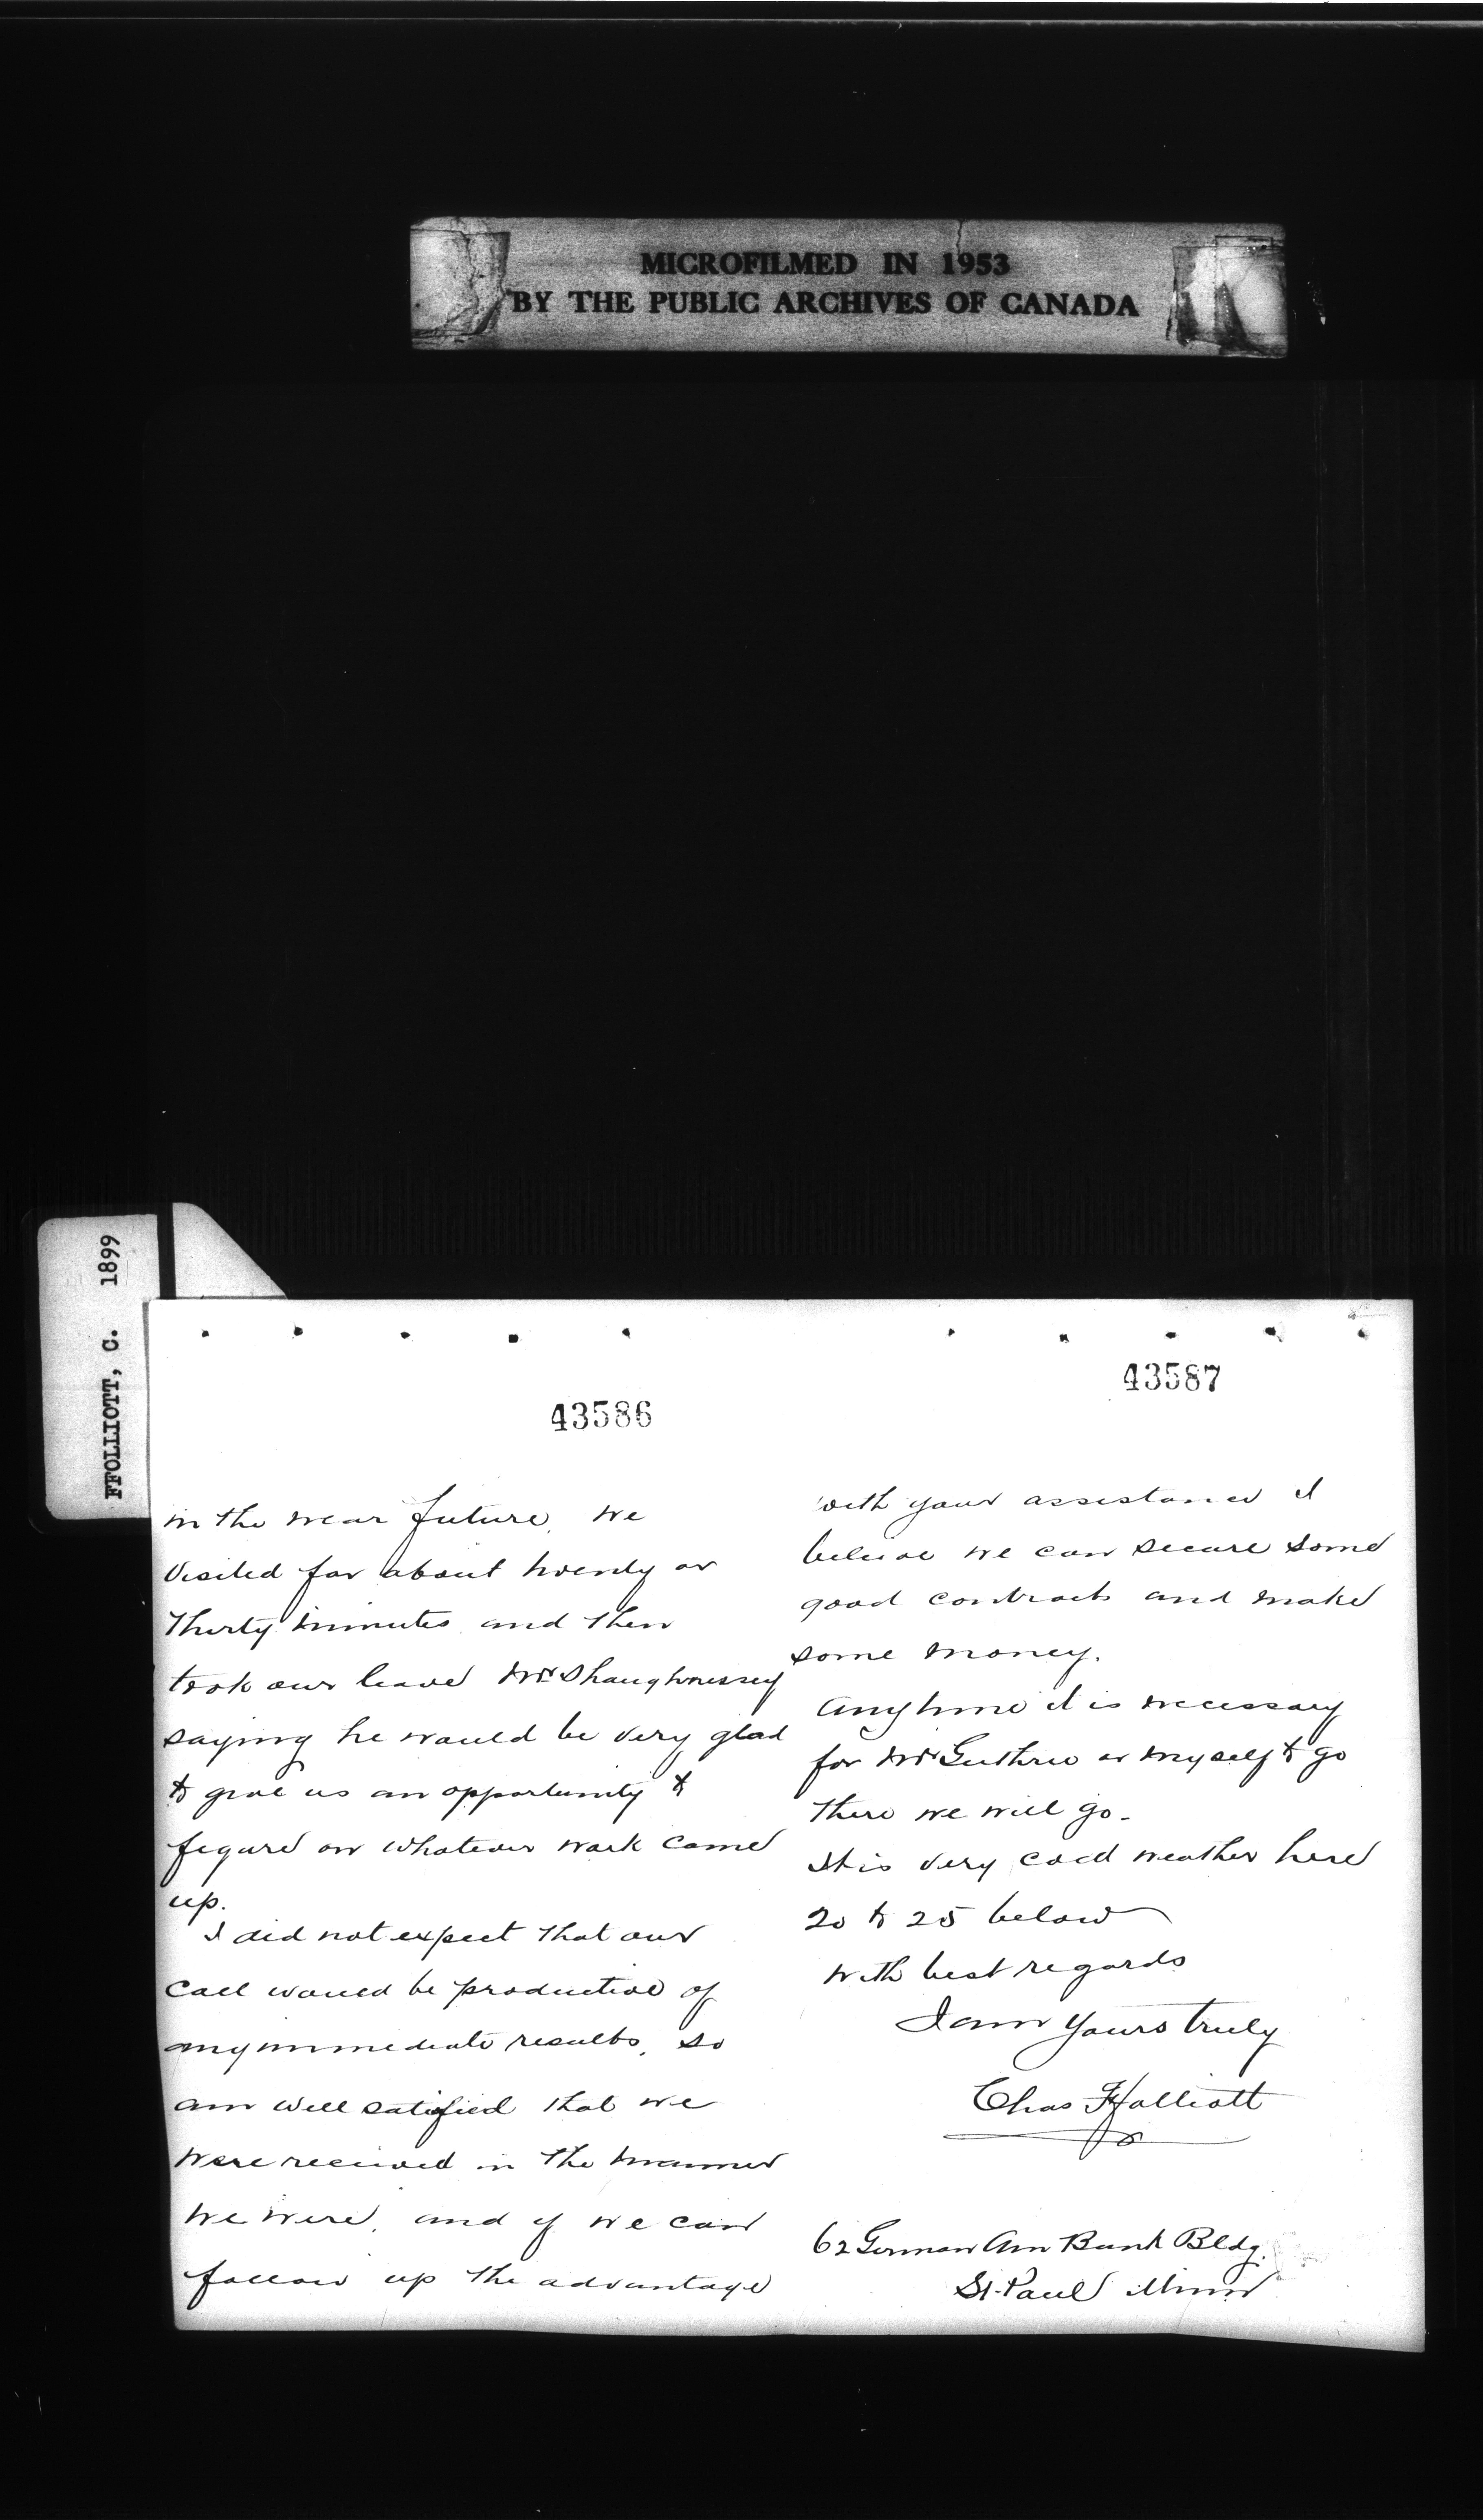 MICROFILMED IN 1953
BY THE PUBLIC ARCHIVES OF CANADA
FFOLLIOTT, C. 1899
43586
in the near future. We
visited for about twenty or
thirty minutes and then
took our leave Mr Shaughnessey
saying he would be very glad
to give us an opportunity to
figure on whatever work came
up.
I did not expect that our
call would be productive of
any immediate results, so
am well satisfied that we
were received in the manner
we were, and if we can
follow up the advantage
43587
with your assistance I
believe we can secure some
good contracts and make
some money.
Anytime it is necessary
for Mr Guthrie or myself to go
there we will go.
It is very cold weather here
20 to 25 below
With best regards
I am Yours truly
Chas Ffolliott
62 German Am Bank Bldg.
St. Paul Minn